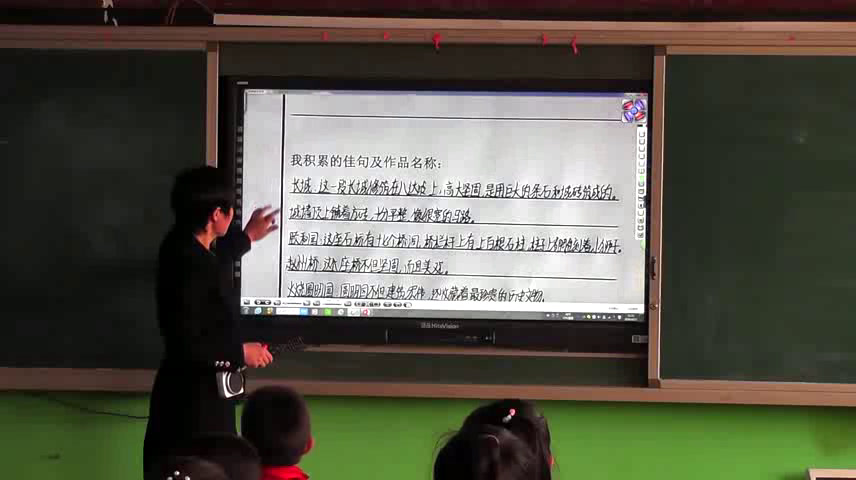 我积累的佳句及作品名称：
长城：这一段长城修筑在八达岭上，高大坚固，是用巨大的条石和城砖筑成的。
城墙顶上铺着方砖，十分平整，像很宽的马路。
颐和园：这座石桥有十七个桥洞，桥栏杆上有上百根石柱，柱子上都雕刻着小狮子。
赵州桥：这座桥不但坚固，而且美观。
火烧圆明园：圆明园不但建筑宏伟，还收藏着最珍贵的历史文物。
HiteVision